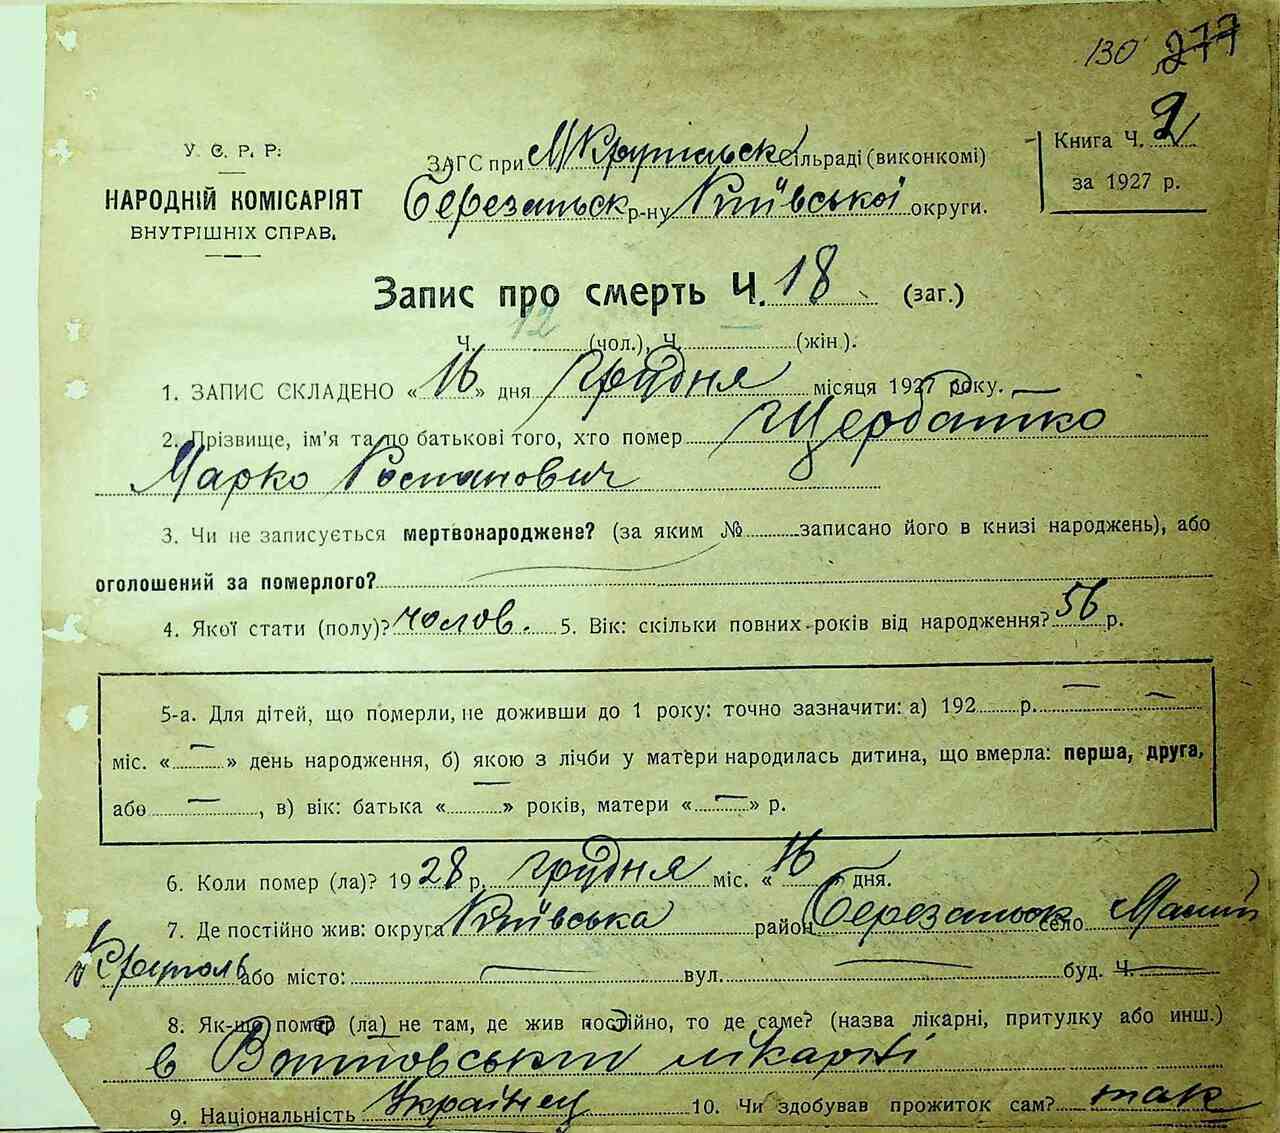 130 277
У. С. Р. Р.
НАРОДНІЙ КОМІСАРІЯТ
ВНУТРІШНІХ СПРАВ.
ЗАГС при М Крупольск сільраді (виконкомі)
Березанськ р-ну Київської округи.
Книга Ч. 2
за 1927 р.
Запис про смерть Ч. 18 (заг.)
Ч. 12 (чол.), Ч. — (жін).
1. ЗАПИС СКЛАДЕНО «16» дня грудня місяця 1927 року.
2. Прізвище, ім'я та по батькові того, хто помер Щербатко
Марко
3. Чи не записується мертвонароджене? (за яким № записано його в книзі народжень), або
оголошений за померлого?
4. Якої стати (полу)? чолов. 5. Вік: скільки повних років від народження? 56 р.
5-а. Для дітей, що померли, не доживши до 1 року: точно зазначити: а) 192 р. — —
міс. «—» день народження, б) якою з лічби у матери народилась дитина, що вмерла: перша, друга,
або —, в) вік: батька «—» років, матери «—» р.
6. Коли помер (ла)? 1928 р. грудня міс. «16» дня.
7. Де постійно жив: округа Київська район Березанськ село Малий
Круполь або місто: — вул. — буд. Ч. —
8. Як-що помер (ла) не там, де жив постійно, то де саме? (назва лікарні, притулку або инш.)
в Войтовській лікарні
9. Національність Українец 10. Чи здобував прожиток сам? так